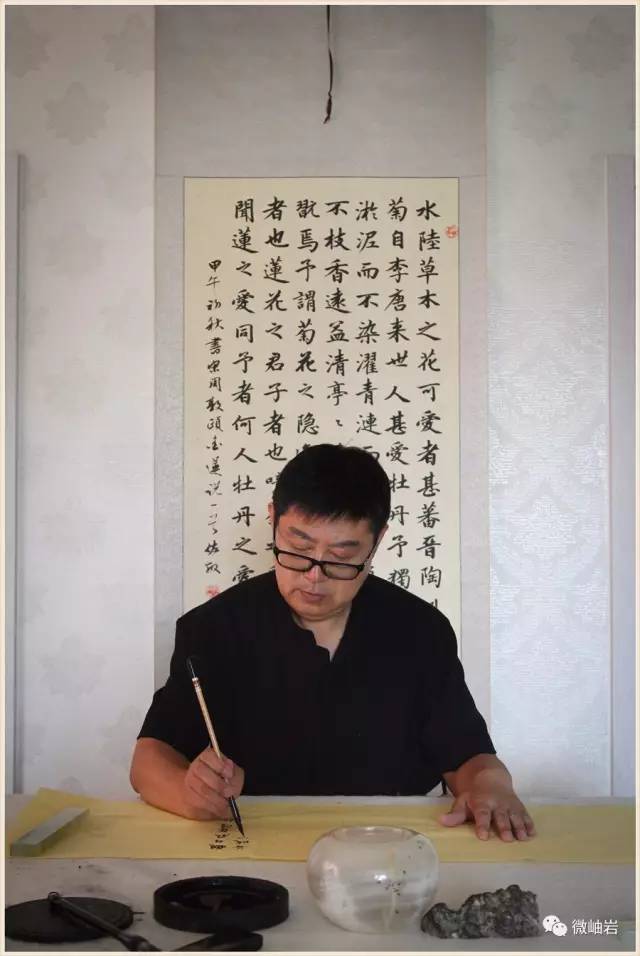 水陸草木之花可愛者甚蕃晉陶
菊自李唐来世人甚愛牡丹予獨
淤泥而不染濯青漣而
不枝香遠益清亭〻
翫焉予謂菊花之隐
者也蓮花之君子者也噫
聞蓮之愛同予者何人牡丹之愛
甲午初秋書宋周敦頤爱蓮说
微岫岩